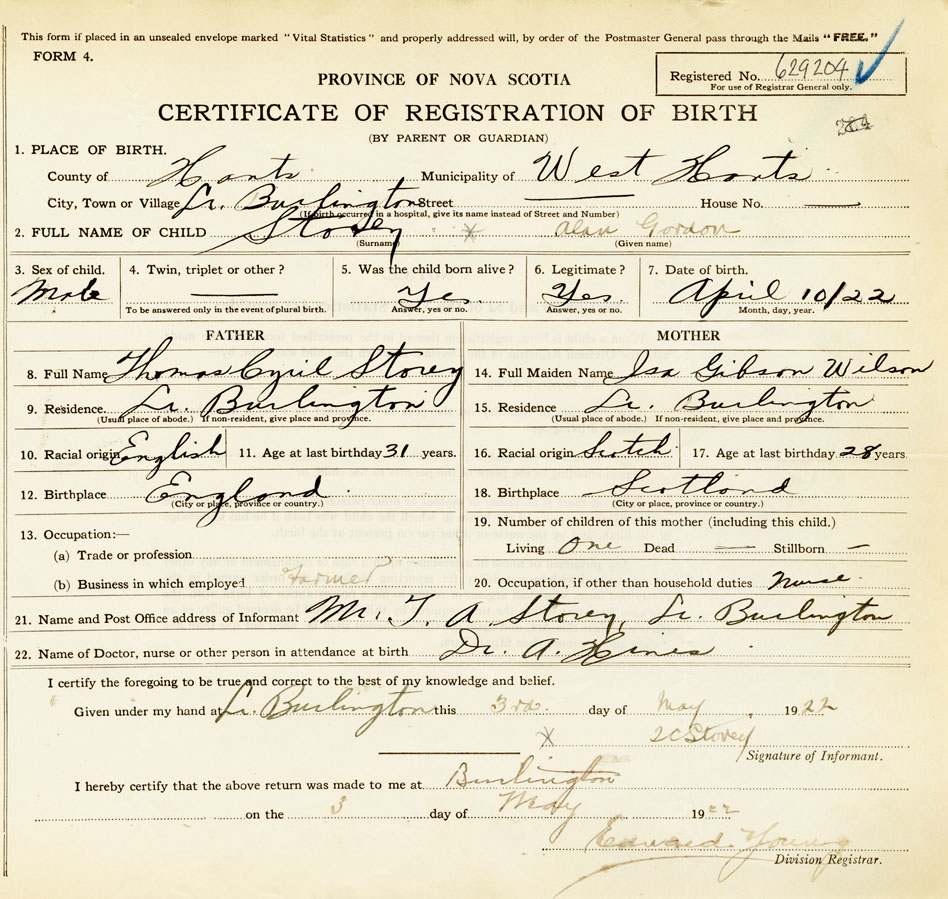 This form if placed in an unsealed envelope marked "Vital Statistics" and properly addressed will, by order of the Postmaster General pass through the Mails "FREE."
FORM 4.
PROVINCE OF NOVA SCOTIA
Registered No. 629204
For use of Registrar General only.
CERTIFICATE OF REGISTRATION OF BIRTH
(BY PARENT OR GUARDIAN)
1. PLACE OF BIRTH.
County of Hants Municipality of West Hants
City, Town or Village Lr. Burlington Street — House No. —
(If birth occurred in a hospital, give its name instead of Street and Number)
2. FULL NAME OF CHILD Storey Alan Gordon
(Surname) (Given name)
3. Sex of child. 4. Twin, triplet or other? 5. Was the child born alive? 6. Legitimate? 7. Date of birth.
Male — Yes. Yes. April 10/22
To be answered only in the event of plural birth. Answer, yes or no. Answer, yes or no. Month, day, year.
FATHER MOTHER
8. Full Name Thomas Cyril Storey 14. Full Maiden Name Isa Gibson Wilson
9. Residence Lr. Burlington 15. Residence Lr. Burlington
(Usual place of abode.) If non-resident, give place and province. (Usual place of abode.) If non-resident, give place and province.
10. Racial origin English 11. Age at last birthday 31 years. 16. Racial origin Scotch 17. Age at last birthday 28 years
12. Birthplace England 18. Birthplace Scotland
(City or place, province or country.) (City or place, province or country.)
13. Occupation:— 19. Number of children of this mother (including this child.)
(a) Trade or profession Living One Dead — Stillborn —
(b) Business in which employed Farmer 20. Occupation, if other than household duties Nurse
21. Name and Post Office address of Informant Mr. T. A. Storey, Lr. Burlington
22. Name of Doctor, nurse or other person in attendance at birth Dr. A. Hines
I certify the foregoing to be true and correct to the best of my knowledge and belief.
Given under my hand at Lr. Burlington this 3rd. day of May, 1922
Storey
Signature of Informant.
I hereby certify that the above return was made to me at Burlington
on the 3 day of May 1922
Edward Young
Division Registrar.